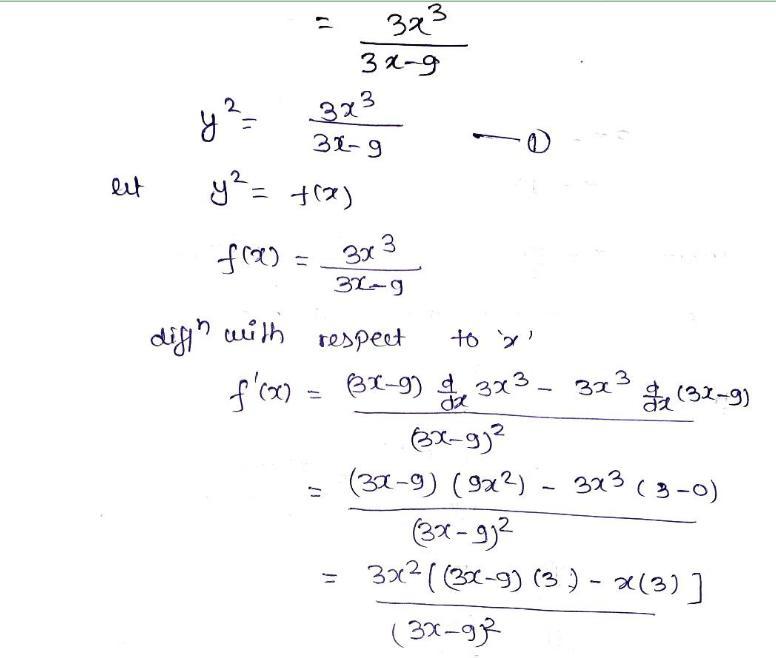 = 3x³/(3x-9)
y² = 3x³/(3x-9) —①
let y² = f(x)
f(x) = 3x³/(3x-9)
diffⁿ with respect to 'x'
f'(x) = ((3x-9) d/dx 3x³ - 3x³ d/dx (3x-9))/(3x-9)²
= ((3x-9) (9x²) - 3x³ (3-0))/(3x-9)²
= 3x² [(3x-9) (3) - x(3)]/(3x-9)²